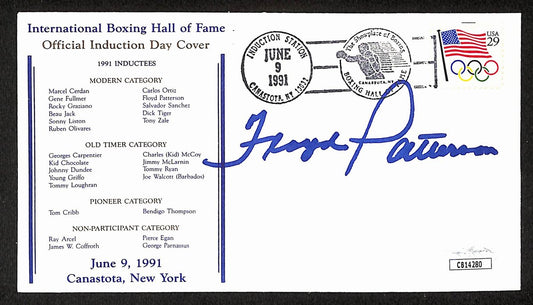 International Boxing Hall of Fame
Official Induction Day Cover
1991 INDUCTEES
MODERN CATEGORY
Marcel Cerdan Carlos Ortiz
Gene Fullmer Floyd Patterson
Rocky Graziano Salvador Sanchez
Beau Jack Dick Tiger
Sonny Liston Tony Zale
Ruben Olivares
OLD TIMER CATEGORY
Georges Carpentier Charles (Kid) McCoy
Kid Chocolate Jimmy McLarnin
Johnny Dundee Tommy Ryan
Young Griffo Joe Walcott (Barbados)
Tommy Loughran
PIONEER CATEGORY
Tom Cribb Bendigo Thompson
NON-PARTICIPANT CATEGORY
Ray Arcel Pierce Egan
James W. Coffroth George Parnassus
June 9, 1991
Canastota, New York
INDUCTION STATION
JUNE
9
1991
CANASTOTA, NY 13032
The Showplace of Boxing
CANASTOTA, NY
BOXING HALL OF FAME
USA
29
Floyd Patterson
CB14280